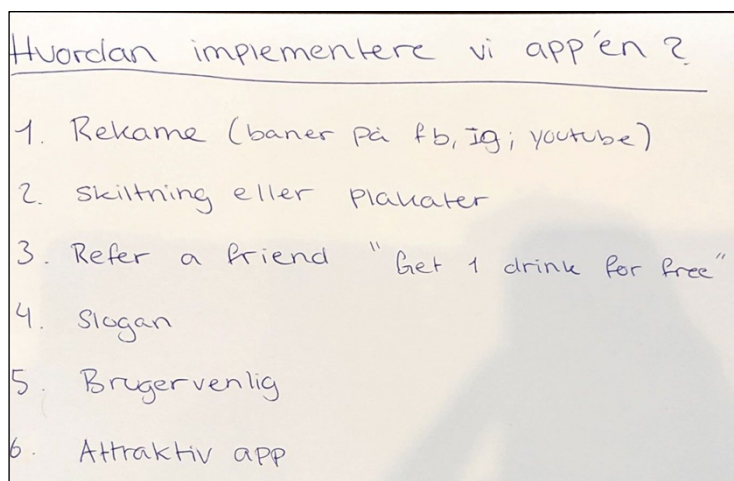 Hvordan implementere vi app'en?
1. Rekame (baner på fb, Ig; youtube)
2. Skiltning eller plakater
3. Refer a friend "Get 1 drink for free"
4. Slogan
5. Brugervenlig
6. Attraktiv app